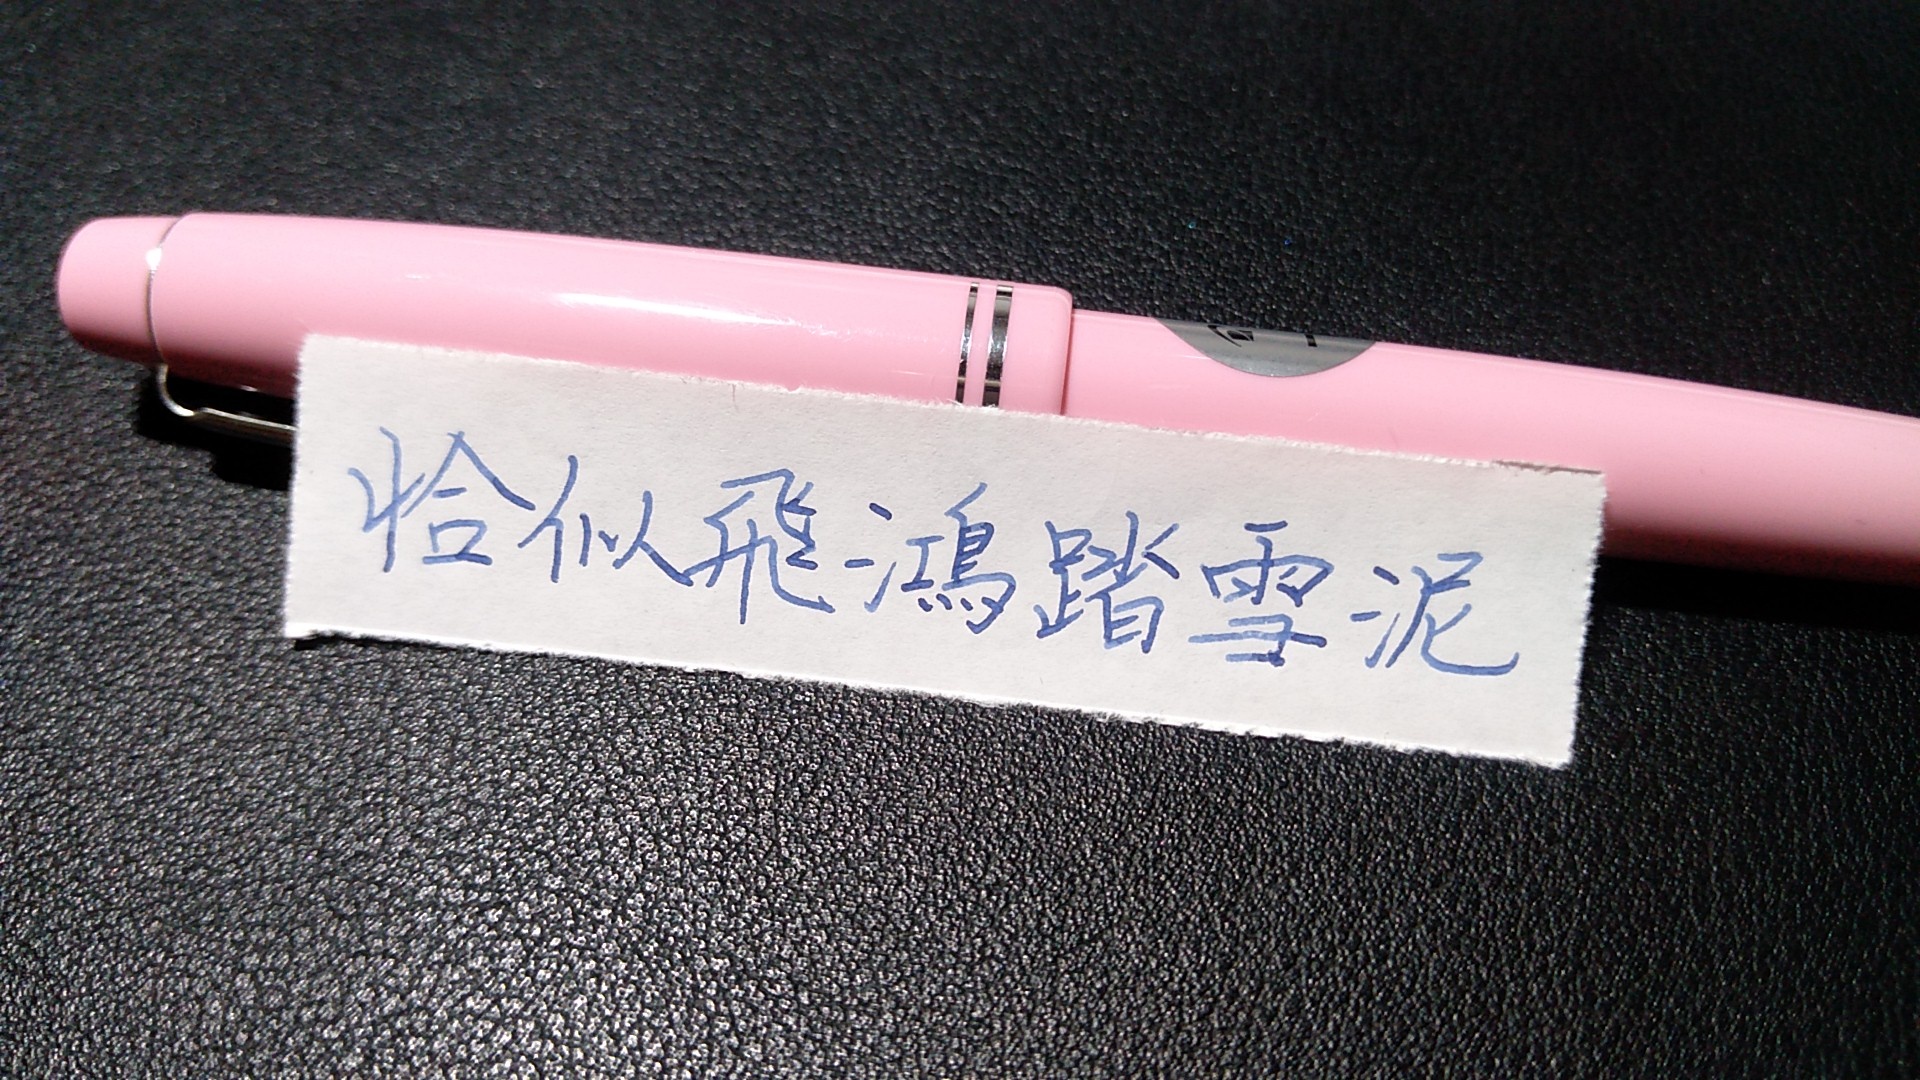 恰似飛鴻踏雪泥